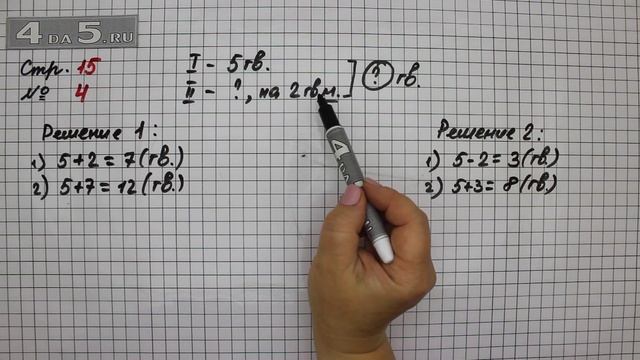 4 DA 5.RU
Стр. 15
№ 4
I - 5 гв.
II - ?, на 2 гв. м.
? гв.
Решение 1:
1) 5+2=7(гв.)
2) 5+7=12(гв.)
Решение 2:
1) 5-2=3(гв.)
2) 5+3=8(гв.)